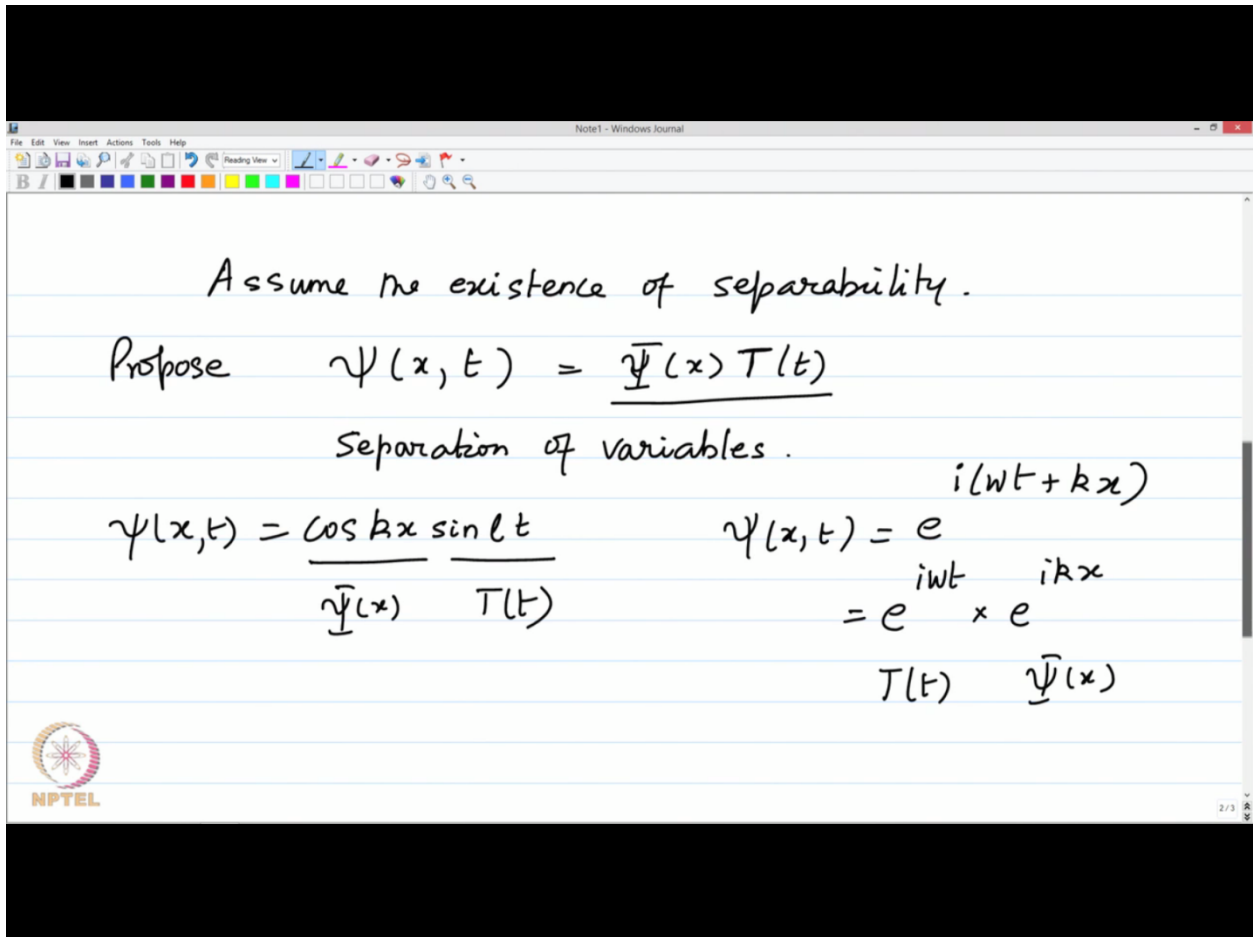 Note1 - Windows Journal
File Edit View Insert Actions Tools Help
Reading View
B I
Assume the existence of separability.
Propose ψ(x, t) = Ψ(x) T(t)
Separation of variables.
ψ(x,t) = cos kx sin lt
Ψ(x) T(t)
ψ(x, t) = e^{i(wt + kx)}
= e^{iwt} × e^{ikx}
T(t) Ψ(x)
NPTEL
2/3